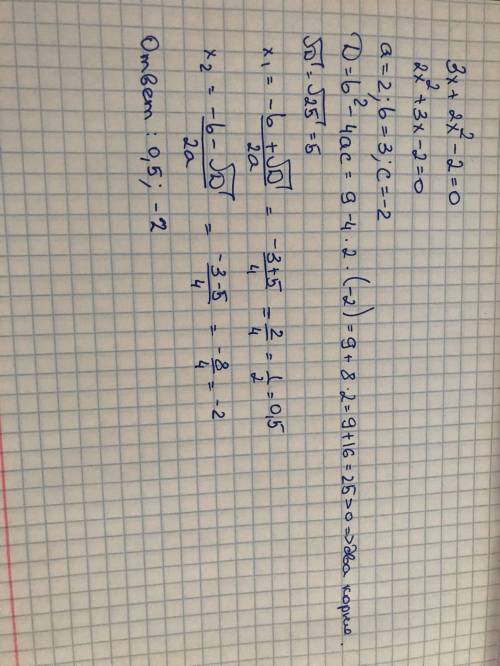 3x + 2x² - 2 = 0
2x² + 3x - 2 = 0
a = 2; b = 3; c = -2
D = b² - 4ac = 9 - 4 · 2 · (-2) = 9 + 8 · 2 = 9 + 16 = 25 > 0 => два корня.
√D = √25 = 5
x₁ = (-b + √D)/2a = (-3+5)/4 = 2/4 = 1/2 = 0,5
x₂ = (-b - √D)/2a = (-3-5)/4 = -8/4 = -2
Ответ: 0,5; -2